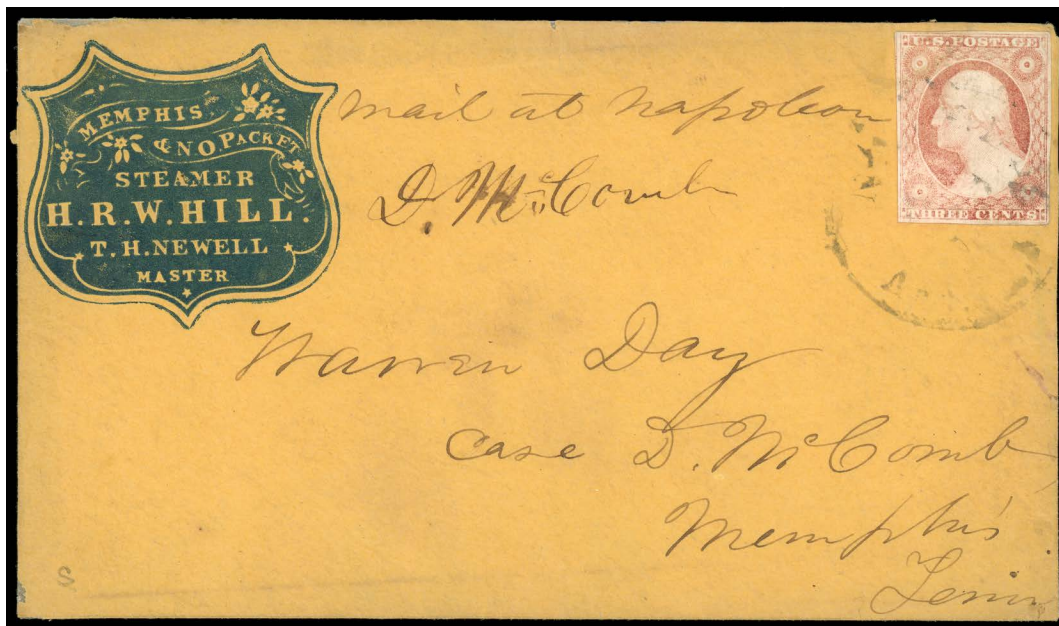 MEMPHIS
& N.O. PACKET
STEAMER
H.R.W. HILL.
T. H. NEWELL
MASTER
mail at Napoleon
D. McComb
U.S. POSTAGE
THREE CENTS
Warren Day
Case D. McComb
Memphis
Tenn
S